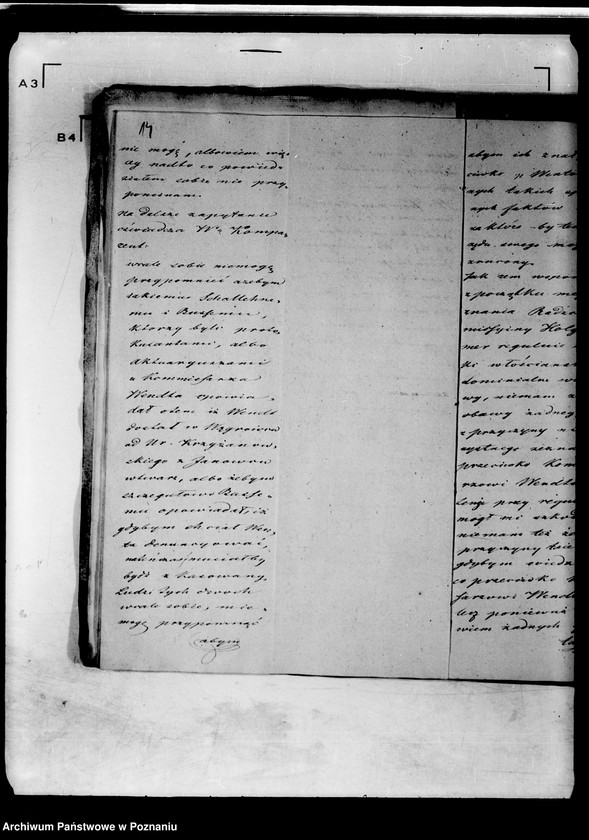 A3
B4
14
nie mogę, albowiem wię-
cy nadto co powied-
ziałem sobie nie przy-
pominam.
Na dalsze zapytanie
oświadcza Wny Kompa-
rent:
wcale sobie niemogę
przypomnieć azebym
takiemu Schallehne-
mu i Bussemu,
którzy byli proto-
kulantami, albo
Aktuaryuszami
u Kommissarza
Wendta opowia-
dał otem iż Wendt
dostał w Wągrówcu
od Ur. Krzyżanow-
skiego z Janowca
w twarz, albo żebym
szczegułowo Busse-
mu opowiadał, iż
gdybym chciał Wen-
ta denuncyować,
natenczas musiałby
bydź z kasowany.
Ludzi tych dwoch
wcale sobie, nie-
mogę przypomnieć
abym
abym ich znał
ciwko p. Wendt
nych takich
nych faktów
zakтóre by
rzonony.
Jak zem wspom
z początku
znania Radzca
missyiny
mer regulnie
ki włościańs
dominialne
wy, niemam
obawy żadnej
z przyczyny
zystnego zezna
przeciwko Kom
rzowi Wendt
mógł mi szkod
niemam też
przyczyny
gdybym wiedz
co przeciwko
sarzowi Wendt
lecz ponieważ
wiem żadnych
Archiwum Państwowe w Poznaniu